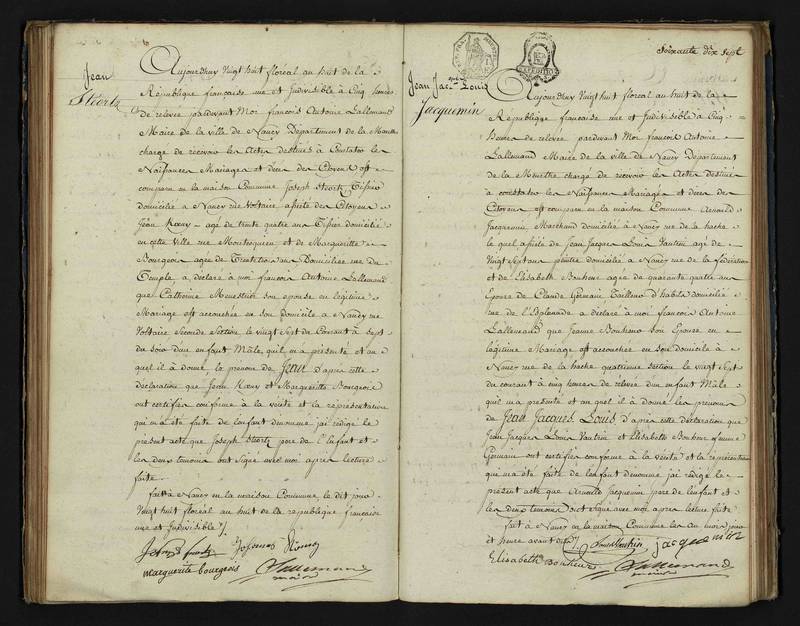 Jean
Steertz
Aujourdhuy Vingt huit floréal au huit de la
République française une et Indivisible à Cinq heures
de relevée pardevant Moi françois Antoine Lallemand
Maire de la ville de Nancy Département de la Meurthe
charge de recevoir les Actes destinés à Constater les
Naissances Mariages et décès des Citoyens est
comparu en la maison Commune Joseph Steertz Tissier
domicilié a Nancy rue Voltaire assisté des Citoyens
Jean agé de trente quatre ans Tissier domicilié
en cette Ville rue Montesquieu et de Marguerite
Bourgeois agée de ans Domiciliée rue du
Temple, a déclaré à moi françois Antoine Lallemand
que Catherine Menestrier son epouse en légitime
Mariage est accouchée en son domicile a Nancy rue
Voltaire Seconde Section le vingt Sept du Courant à sept
du soir d'un enfant Mâle, qu'il m'a présenté et au
quel il a donné le prenom de Jean d'après cette
déclaration que Jean et Marguerite Bourgeois
ont certifiés conforme à la vérité et la représentation
qui m'a été faite de l'enfant denommé j'ai rédigé le
présent acte que Joseph Steertz pere de l'Enfant et
les deux temoins ont Signé avec moi après lecture
faite
fait à Nancy en la maison Commune le dit jour
Vingt huit floréal au huit de la republique française
une et Indivisible
marguerite bourgeois Lallemand
maire
Soixante dix sept
EXPEDITION
Jean Jac.ques Louis
Jacquemin
Aujourdhuy Vingt huit floréal au huit de la
République française une et Indivisible à Cinq
heures de relevée pardevant Moi françois Antoine
Lallemand Maire de la Ville de Nancy Département
de la Meurthe chargé de recevoir les Actes destinés
à constater les Naissances Mariages et décès des
Citoyens est comparu en la maison Commune Arnould
Jacquemin Marchand domicilié à Nancy rue de la hache
le quel assisté de Jean Jacques Louis Vautrin agé de
Vingt Sept ans peintre domicilié a Nancy rue de la fédération
et de Elisabeth Bonheur agée de quarante quatre ans
Epouse de Claude Germain Tailleur d'habits domiciliée
rue de l'Esplanade a déclaré à moi françois Antoine
Lallemand que Jeanne Bonheur Son Epouse en
légitime Mariage est accouchée en son domicile à
Nancy rue de la hache quatrieme section le vingt Sept
du courant à cinq heures de relevée d'un enfant Mâle
qu'il m'a présenté et au quel il a donné les prenoms
de Jean Jacques Louis d'après cette déclaration que
Jean Jacques Louis Vautrin et Elisabeth Bonheur femme
Germain ont certifiés conforme à la vérité et la représentation
qui m'a été faite de l'enfant denommé j'ai rédigé le
présent acte que Arnould Jacquemin pere de l'enfant et
les deux temoins ont signé avec moi après lecture faite
fait à Nancy en la maison Commune les an mois jour
et heure avant dits Louis Vautrin jacquemin
Elisabeth Bonheur Lallemand
maire